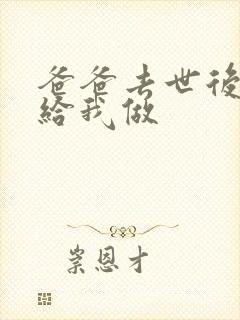 爸爸去世後
給我做
崇恩才